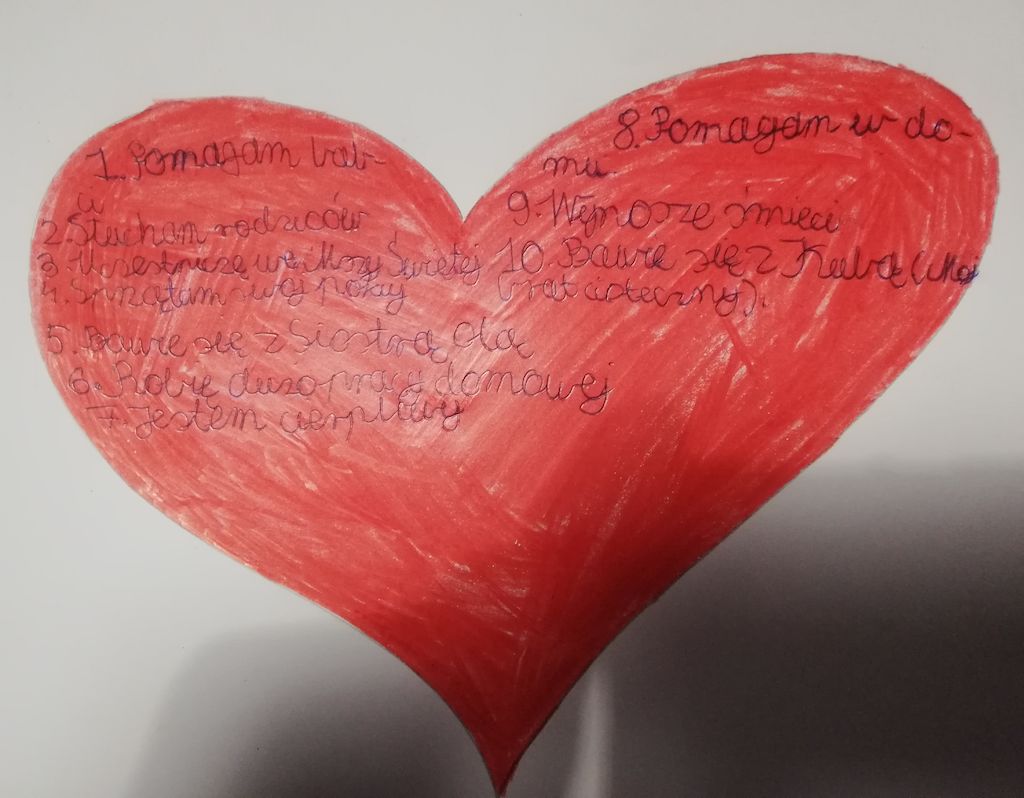 1. Pomagam bab-
ci
2. Słucham rodziców
3. Uczestniczę we Mszy Świętej
4. Sprzątam swój pokój
5. Bawię się z Siostrą Olą
6. Robię dużo pracy domowej
7. Jestem cierpliwy
8. Pomagam w do-
mu.
9. Wynoszę śmieci
10. Bawię się z Kubą (Mój
brat cioteczny).